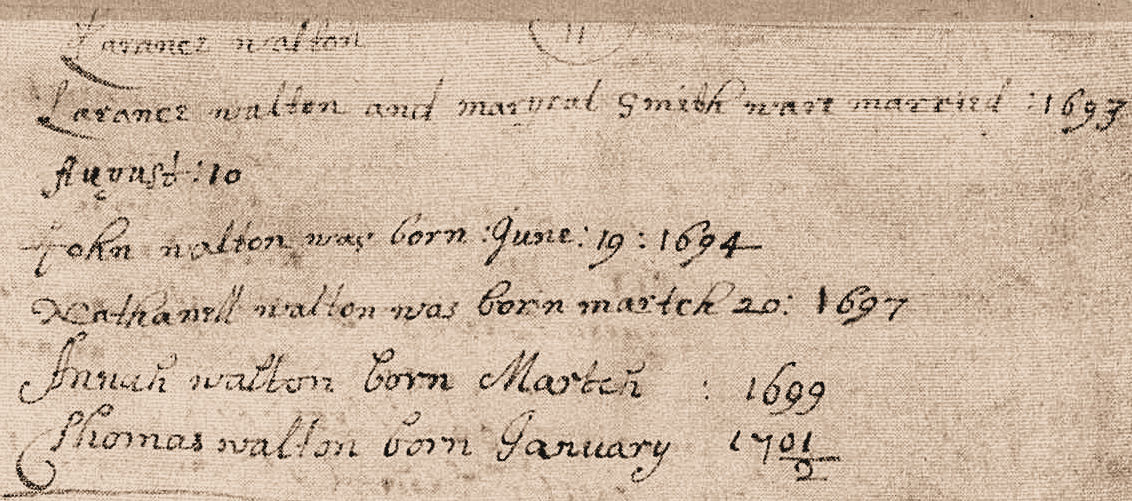 Larance walton 11
Larance walton and maryeat Smith ware married :1693
August:10
John walton was born :June:19:1694
Nathanell walton was born martch 20: 1697
Annah walton born Martch : 1699
Thomas walton born January 1701/2